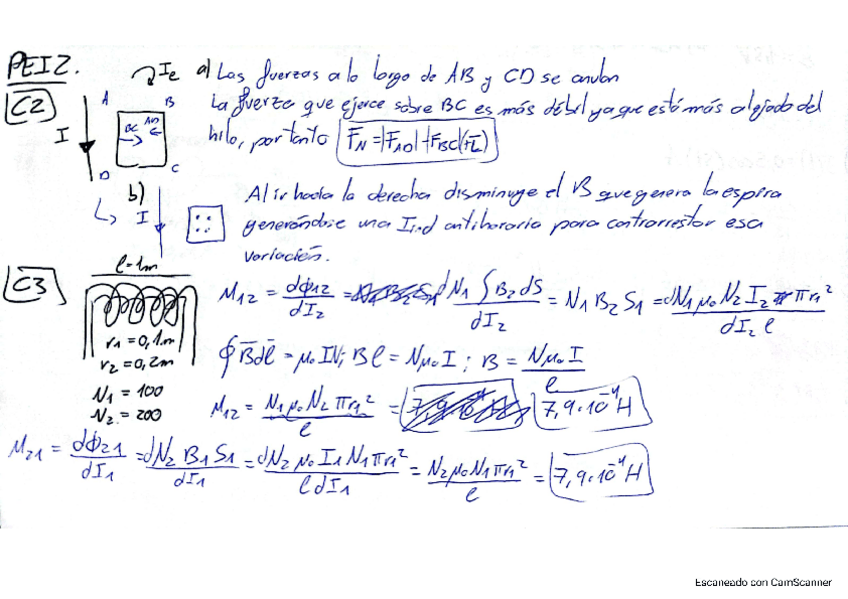 PEI2.
C2
I
A
B
D
C
BC
AD
Ie
a) Las fuerzas a lo largo de AB y CD se anulan
La fuerza que ejerce sobre BC es más débil ya que está más alejado del
hilo, por tanto
b)
I
Al ir hacia la derecha disminuye el B que genera la espira
generándose una Iind antihoraria para contrarrestar esa
variación.
C3
l=1m
r1 = 0,1m
r2 = 0,2m
N1 = 100
N2 = 200
M12 = dϕ12/dI2 = dN1 ∫B2 dS/dI2 = N1 B2 S1 = dN1 μ0 N2 I2 πr1²/dI2 l
∮B̄dl̄ = μ0 IN; Bl = Nμ0 I; B = Nμ0 I/l
M12 = N1 μ0 N2 πr1²/l = 7,9·10⁻⁴ H
M21 = dϕ21/dI1 = dN2 B1 S1/dI1 = dN2 μ0 I1 N1 πr1²/l dI1 = N2 μ0 N1 πr1²/l = 7,9·10⁻⁴ H
Escaneado con CamScanner